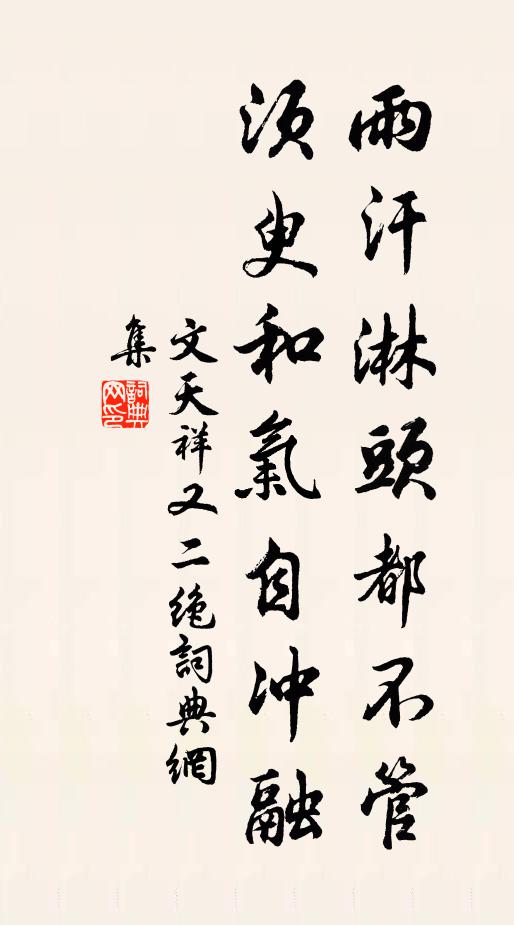 雨汗淋頭都不管
須臾和氣自沖融
文天祥又二絶詞典網
集
詞典網印